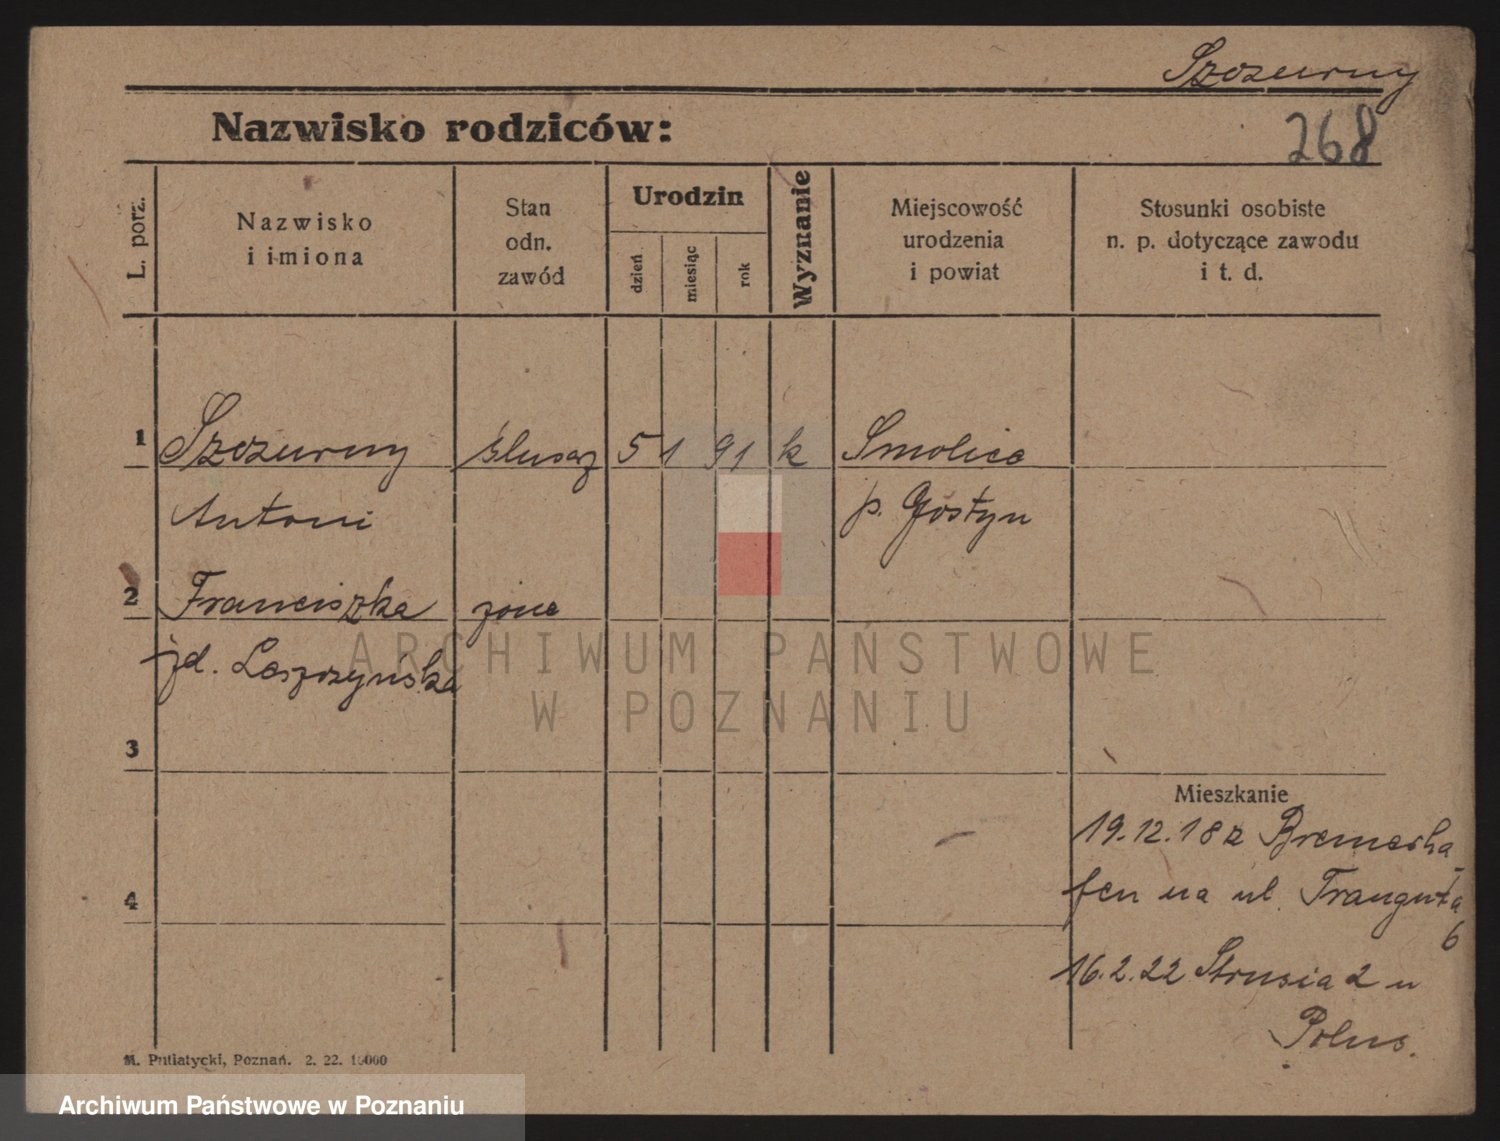 Szczurny
Nazwisko rodziców:
268
L. porz.
Nazwisko
i imiona
Stan
odn.
zawód
Urodzin
dzień
miesiąc
rok
Wyznanie
Miejscowość
urodzenia
i powiat
Stosunki osobiste
n. p. dotyczące zawodu
i t. d.
1 Szczurny ślusarz 5 1 91 k Smolice
Antoni p. Gostyn
2 Franciszka żona
żd. Leszczyńska
ARCHIWUM PAŃSTWOWE
W POZNANIU
3
Mieszkanie
19.12.18 z Bremerha-
fen na ul. Trauguta
6
4
16.2.22 Strusia 2 u
Polus.
M. Putiatycki, Poznań. 2. 22. 10000
Archiwum Państwowe w Poznaniu